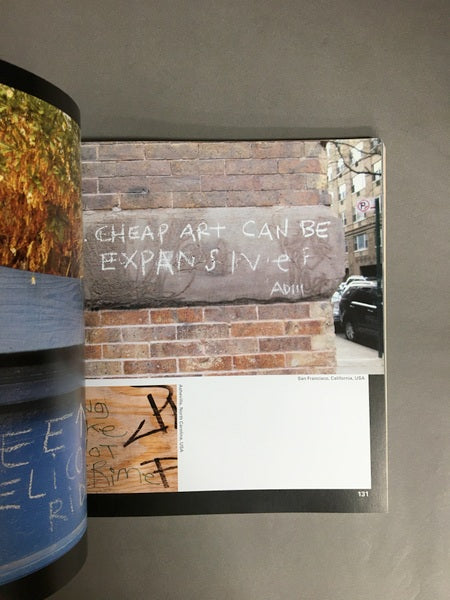 CHEAP ART CAN BE
EXPANSIVe!
San Francisco, California, USA
Asheville, North Carolina, USA
ke
OT
Rime
EEN
ELIC
RID
P
131